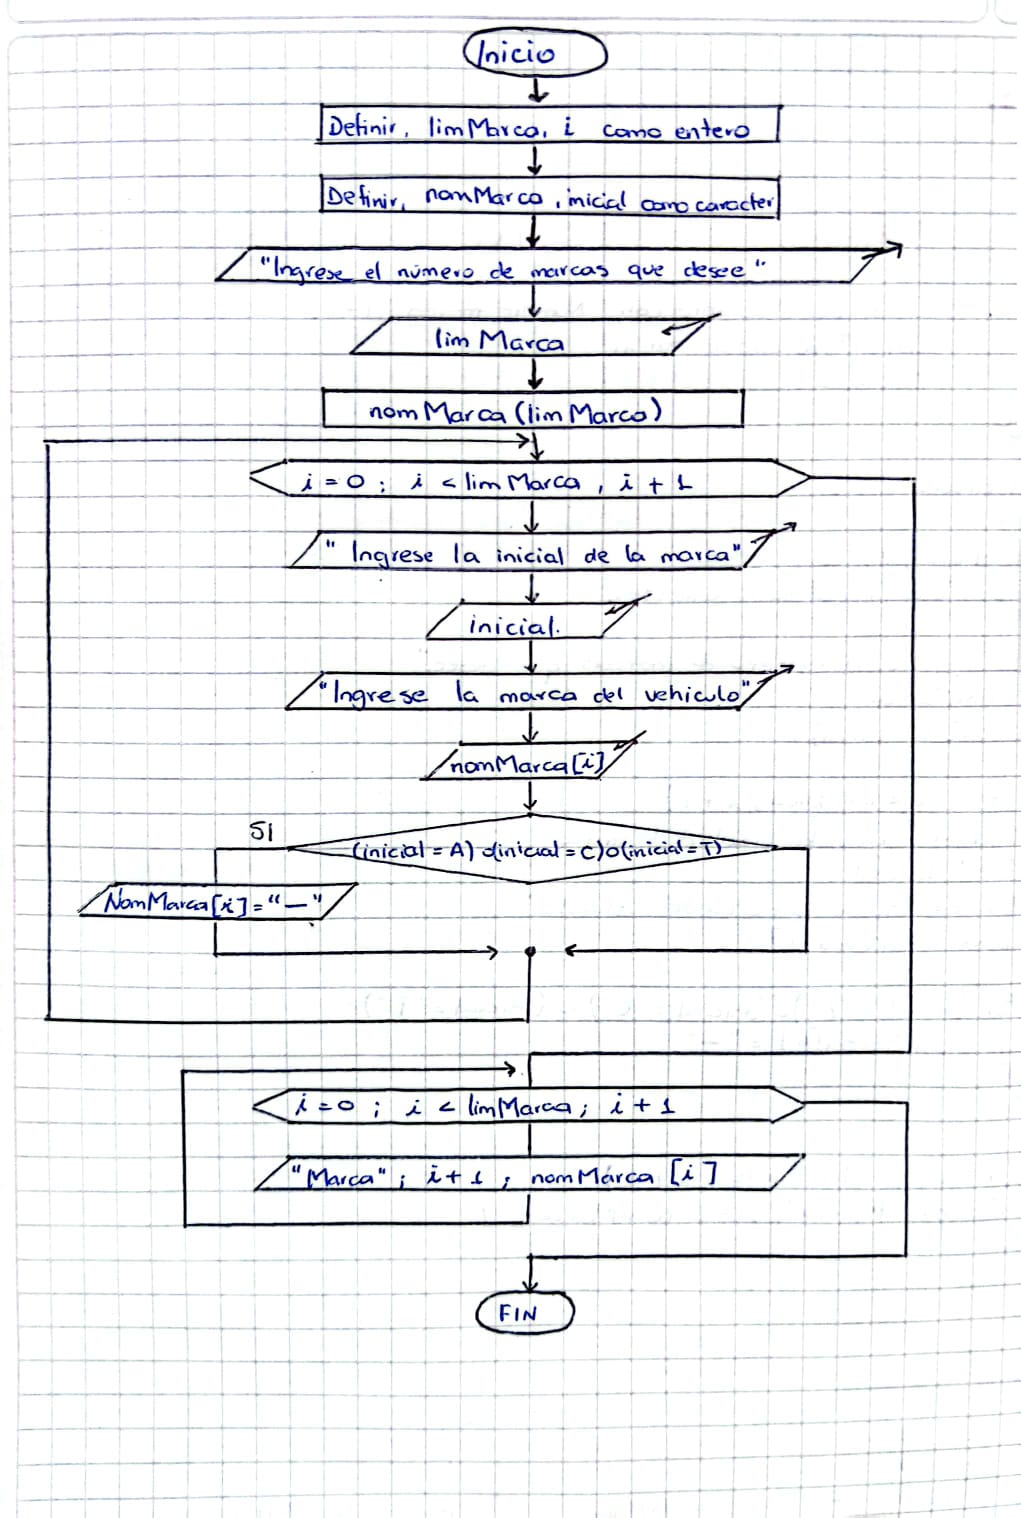 Inicio
Definir, limMarca, i como entero
Definir, nomMarca, inicial como caracter
"Ingrese el número de marcas que desee"
lim Marca
nomMarca (limMarca)
i = 0 ; i < limMarca , i + 1
"Ingrese la inicial de la marca"
inicial.
"Ingrese la marca del vehiculo"
nomMarca[i]
SI
(inicial = A) o(inicial = C) o(inicial = T)
NomMarca[i] = "—"
i = 0 ; i < limMarca ; i + 1
"Marca" ; i + 1 ; nomMarca [i]
FIN